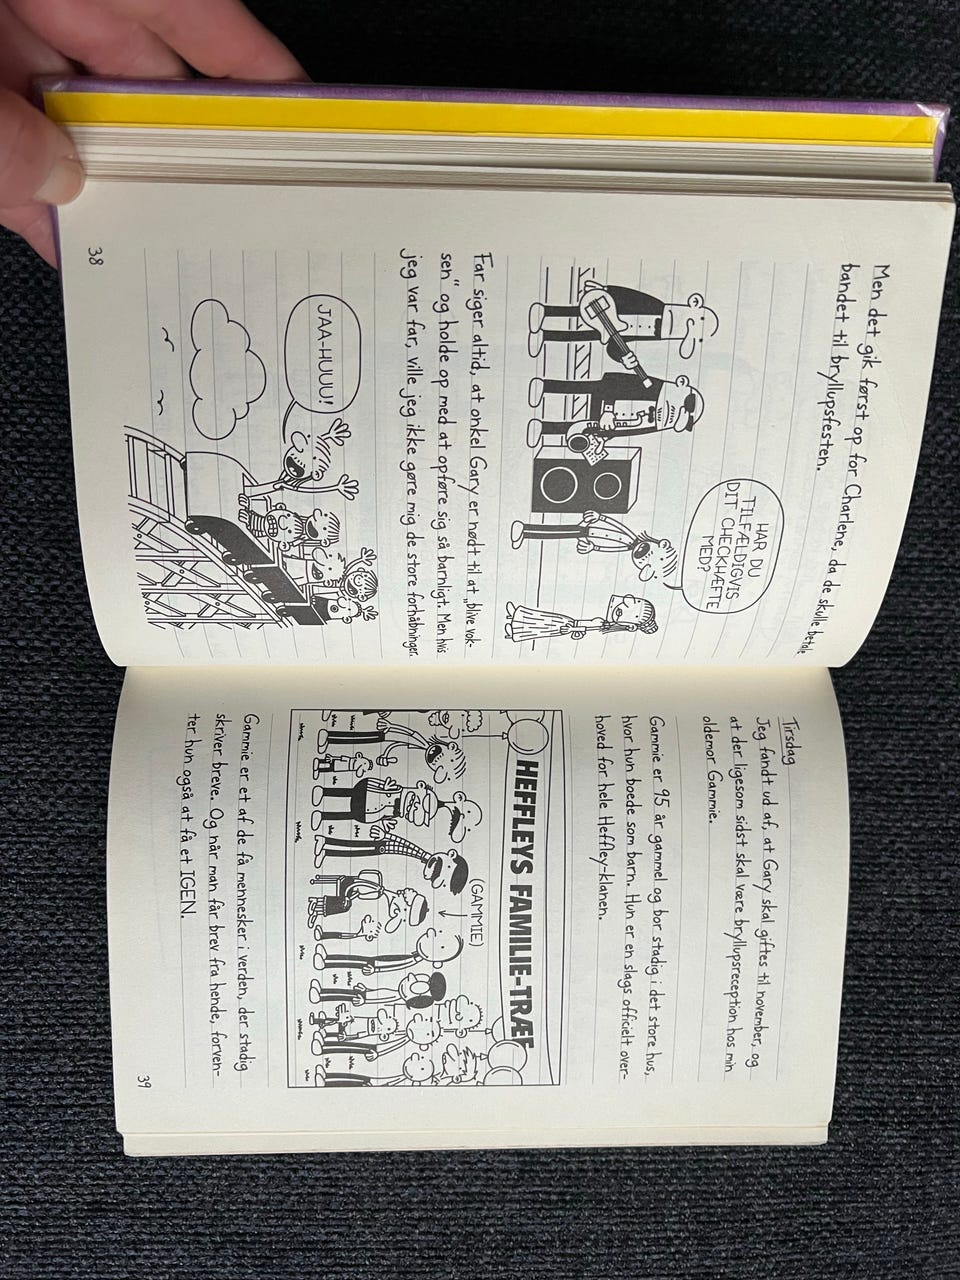 Men det gik først op for Charlene, da de skulle betale
bandet til bryllupsfesten.
HAR DU
TILFÆLDIGVIS
DIT CHECKHÆFTE
MED?
Far siger altid, at onkel Gary er nødt til at „blive vok-
sen“ og holde op med at opføre sig så barnligt. Men hvis
jeg var far, ville jeg ikke gøre mig de store forhåbninger.
JAA-HUUU!
38
Tirsdag
Jeg fandt ud af, at Gary skal giftes til november, og
at der ligesom sidst skal være bryllupsreception hos min
oldemor Gammie.
Gammie er 95 år gammel og bor stadig i det store hus,
hvor hun boede som barn. Hun er en slags officielt over-
hoved for hele Heffley-klanen.
HEFFLEYS FAMILIE-TRÆF
(GAMMIE)
Gammie er et af de få mennesker i verden, der stadig
skriver breve. Og når man får brev fra hende, forven-
ter hun også at få et IGEN.
39